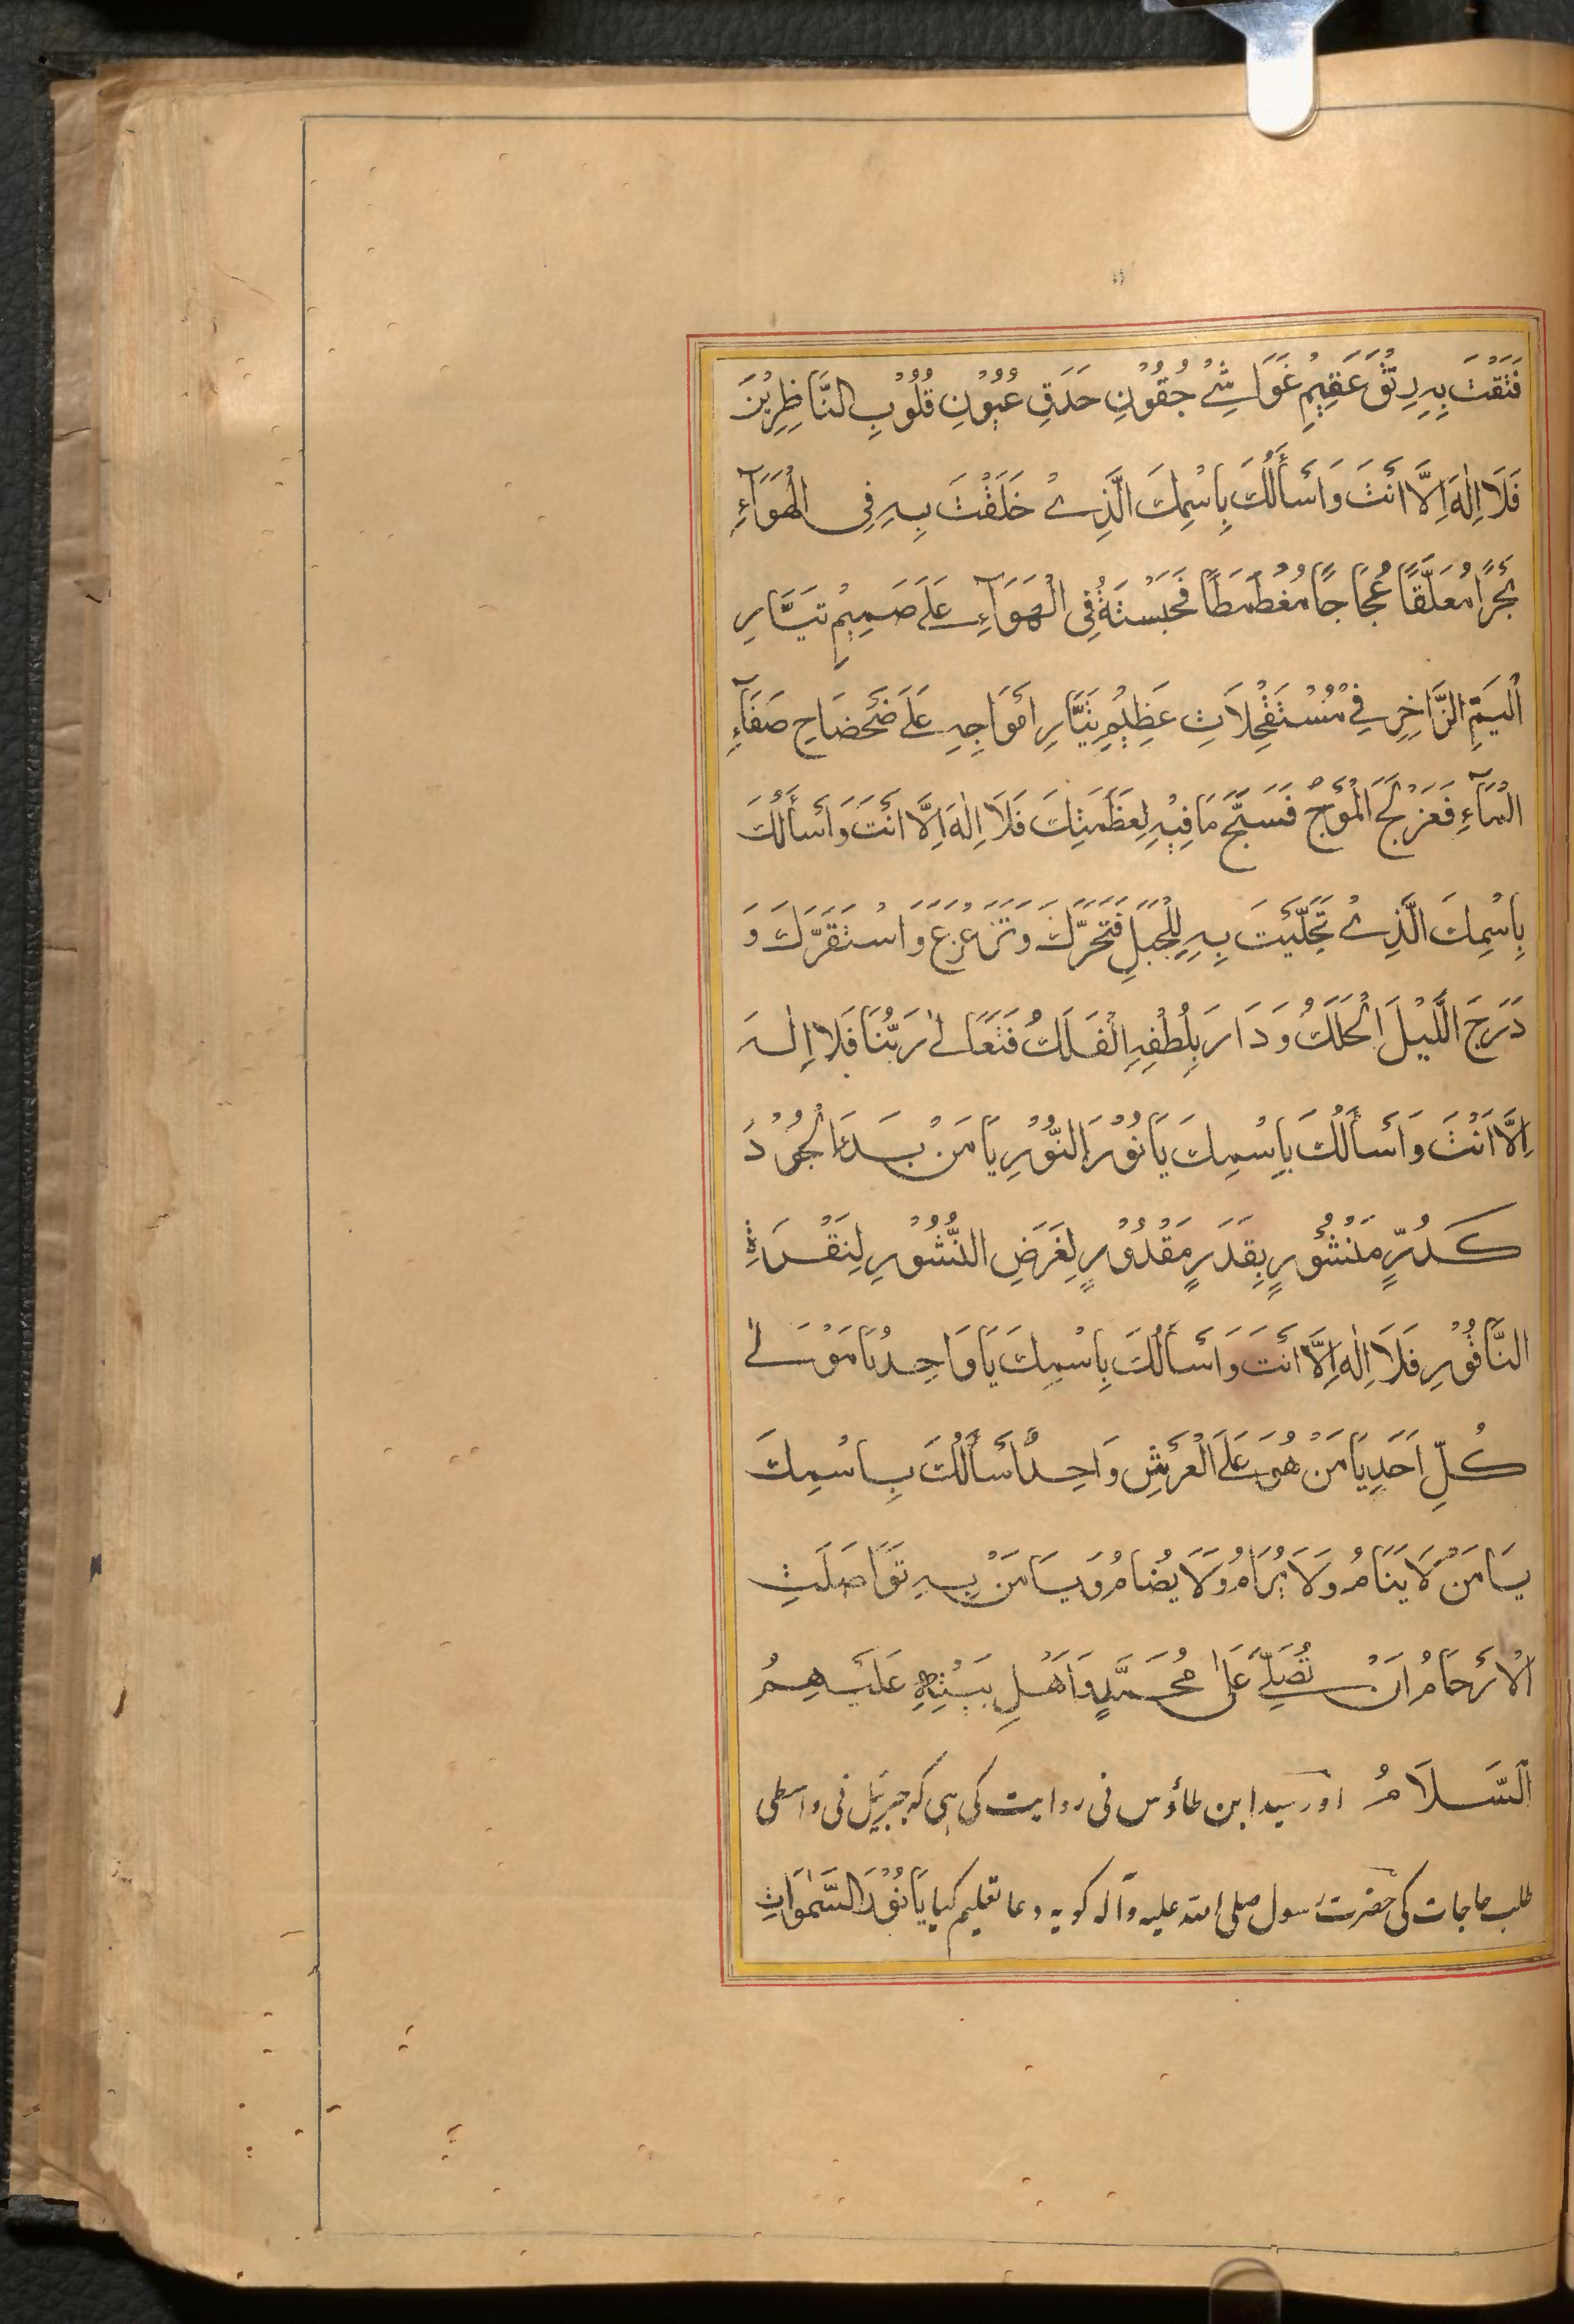 فَتَقْتَ بِهِ رِتْقَ عَقِيْمِ غَوَاشِےْ جُفُوْنِ حَدَقِ عُيُوْنِ قُلُوْبِ النَّاظِرِيْنَ
فَلَا اِلٰهَ اِلَّا اَنْتَ وَاَسْأَلُكَ بِاسْمِكَ الَّذِےْ خَلَقْتَ بِهِ فِی الْهَوَآءِ
بَحْرًا مُعَلَّقًا عُجَاجًا مُغْطَمَطًا فَحَبَسْتَهُ فِی الْهَوَآءِ عَلَےٰ صَمِيْمِ تَيَّارِ
الْيَمِّ الزَّاخِرِ فِےْ مُسْتَفْحِلَاتِ عَظِيْمِ تَيَّارِ اَمْوَاجِهِ عَلَےٰ ضَحْضَاحِ صَفَآءِ
الْمَآءِ فَعَزْلَجَ الْمَوْجُ فَسَبَّحَ مَا فِيْهِ لِعَظَمَتِكَ فَلَا اِلٰهَ اِلَّا اَنْتَ وَاَسْأَلُكَ
بِاسْمِكَ الَّذِےْ تَجَلَّيْتَ بِهِ لِلْجَبَلِ فَتَحَرَّكَ وَتَزَعْزَعَ وَاسْتَقَرَّكَ وَ
دَرَجَ اللَّيْلَ الْحَلَكُ وَدَارَ بِلُطْفِهِ الْفَلَكُ فَتَعَالےٰ رَبُّنَا فَلَا اِلٰهَ
اِلَّا اَنْتَ وَاَسْأَلُكَ بِاِسْمِكَ يَا نُوْرَ النُّوْرِ يَا مَنْ بَدَءَ الْجُوْدَ
كَدُرٍّ مَنْشُوْرٍ بِقَدَرٍ مَقْدُوْرٍ لِغَرَضِ النُّشُوْرِ لِنَقْرَةِ
النَّاقُوْرِ فَلَا اِلٰهَ اِلَّا اَنْتَ وَاَسْأَلُكَ بِاسْمِكَ يَا وَاحِدُ يَا مَوْلےٰ
كُلِّ اَحَدٍ يَا مَنْ هُوَ عَلَے الْعَرْشِ وَاحِدٌ اَسْأَلُكَ بِاسْمِكَ
يَا مَنْ لَا يَنَامُ وَلَا يُرَامُ وَلَا يُضَامُ وَيَا مَنْ بِهِ تَوَاصَلَتِ
الْاَرْحَامُ اَنْ تُصَلِّےَ عَلٰی مُحَمَّدٍ وَاَهْلِ بَيْتِهِ عَلَيْهِمُ
السَّلَامُ اور سید ابن طاؤس نی روایت کی ہی کہ جبرئیل نی واسطی
طلب حاجات کی حضرت رسول صلی اللہ علیہ وآلہ کو یہ دعا تعلیم کیا يَا نُوْرَ السَّمٰوَاتِ